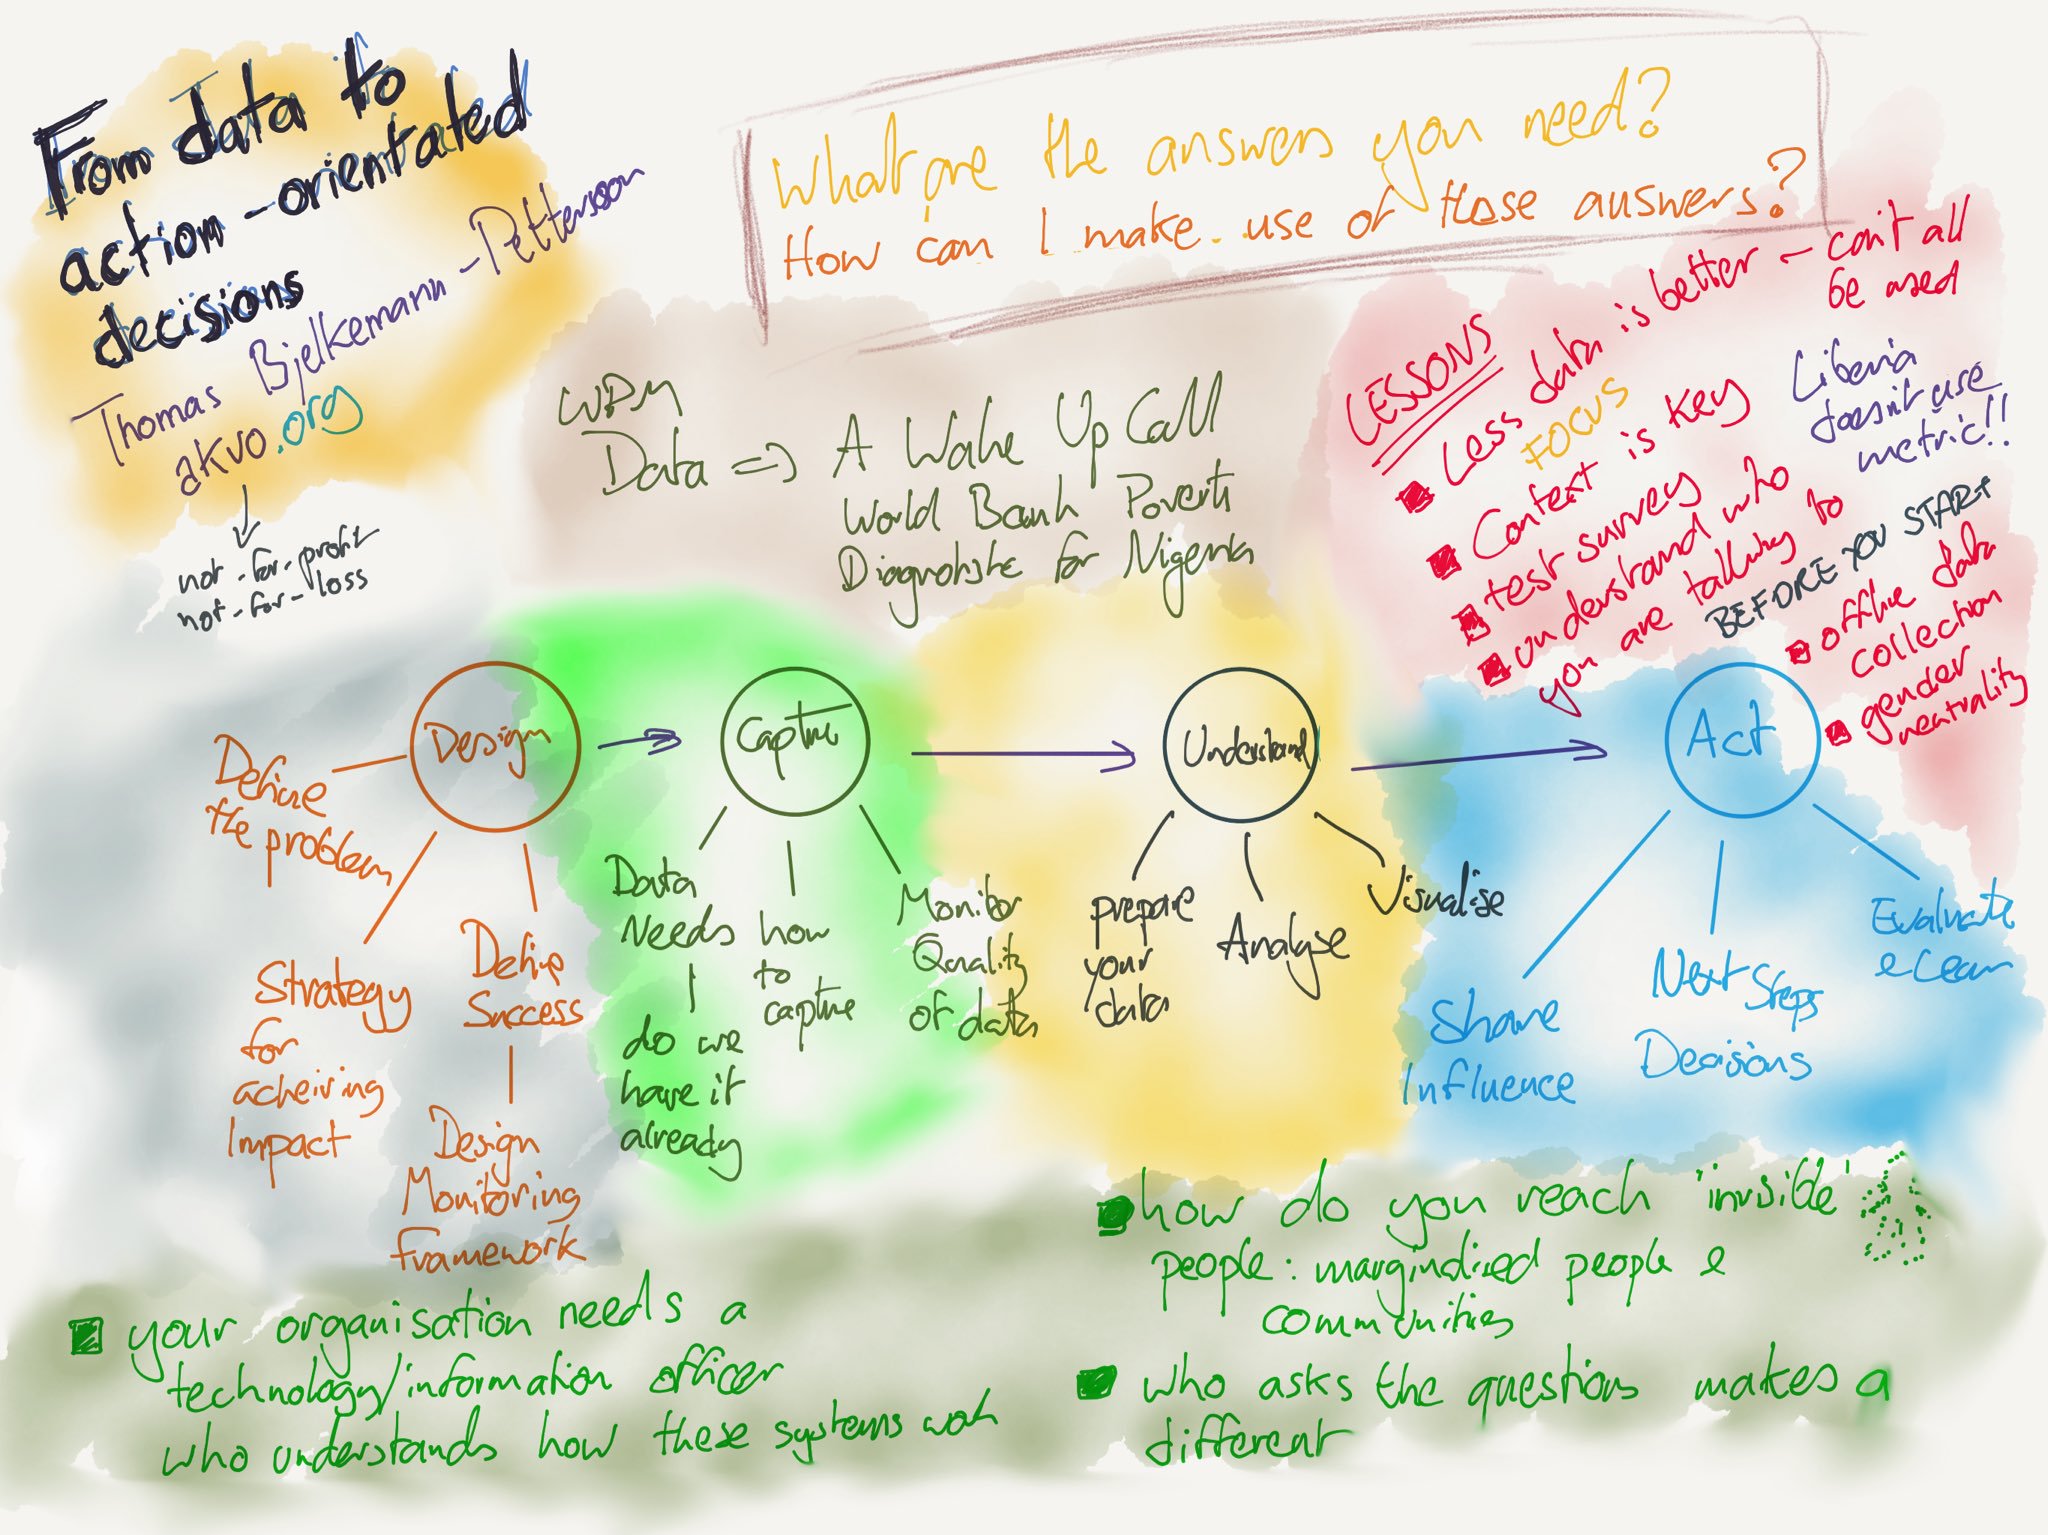 From data to
action-orientated
decisions
Thomas Bjelkemann-Pettersson
akvo.org
not-for-profit
not-for-loss
What are the answers you need?
How can I make use of those answers?
WPM
Data => A Wake Up Call
World Bank Poverty
for Nigeria
LESSONS
Less data is better - can't all
be used
FOCUS
Context is key
Liberia
doesn't use
metric!!
test survey
understand who
you are talking to
BEFORE YOU START
offline data
collection
gender
neutrality
Design
Define
the problem
Strategy
for
acheiving
Impact
Define
Success
Design
Monitoring
framework
Capture
Data
Needs
do we
have it
already
how
to
capture
Monitor
Quality
of data
Understand
prepare
your
data
Analyse
Visualise
Act
Share
Influence
Next Steps
Decisions
Evaluate
& Learn
your organisation needs a
technology/information officer
who understands how these systems work
how do you reach 'invisible'
people: marginalised people &
communities
who asks the questions makes a
different